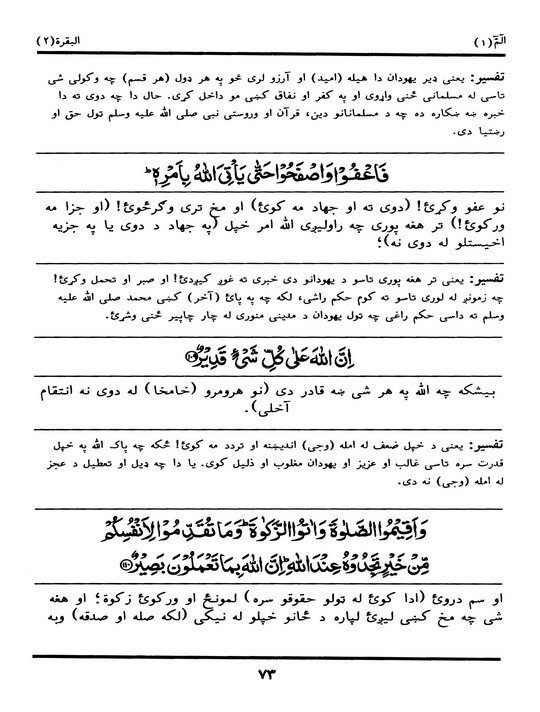 الٓمّٓ (۱)
البقرة (۲)
تفسیر: یعنی ډیر یهودان دا هیله (امید) او آرزو لری څو په هر ډول (هر قسم) چه وکولی شی
تاسی له مسلمانی ځنی واړوی او په کفر او نفاق کښی مو داخل کړی. حال دا چه دوی ته دا
خبره ښه ښکاره ده چه د مسلمانانو دین، قرآن او وروستی نبی صلی الله علیه وسلم ټول حق او
رښتیا دی.
فَاعْفُوْا وَاصْفَحُوْا حَتّٰى يَأْتِىَ اللّٰهُ بِاَمْرِهٖ ؕ
نو عفو وکړئ! (دوی ته او جهاد مه کوئ) او مخ تری وګرځوئ! (او جزا مه
ورکوئ!) تر هغه پوری چه راولیږی الله امر خپل (په جهاد د دوی یا په جزیه
اخیستلو له دوی نه)؛
تفسیر: یعنی تر هغه پوری تاسو د یهودانو دی خبری ته غوږ کیږدئ! او صبر او تحمل وکړئ!
چه زمونږ له لوری تاسو ته کوم حکم راشی، لکه چه په پائ (آخر) کښی محمد صلی الله علیه
وسلم ته داسی حکم راغی چه ټول یهودان د مدینی منوری له چار چاپیر ځنی وشړئ.
اِنَّ اللّٰهَ عَلٰى كُلِّ شَىْءٍ قَدِيْرٌ ۝۱۰۹
بیشکه چه الله په هر شی ښه قادر دی (نو هرومرو (خامخا) له دوی نه انتقام
آخلی).
تفسیر: یعنی د خپل ضعف له امله (وجی) اندیښنه او تردد مه کوئ! ځکه چه پاک الله په خپل
قدرت سره تاسی غالب او عزیز او یهودان مغلوب او ذلیل کوی. یا دا چه ډیل او تعطیل د عجز
له امله (وجی) نه دی.
وَاَقِيْمُوا الصَّلٰوةَ وَاٰتُوا الزَّكٰوةَ ؕ وَمَا تُقَدِّمُوْا لِاَنْفُسِكُمْ
مِّنْ خَيْرٍ تَجِدُوْهُ عِنْدَ اللّٰهِ ؕ اِنَّ اللّٰهَ بِمَا تَعْمَلُوْنَ بَصِيْرٌ ۝۱۱۰
او سم دروئ (ادا کوئ له ټولو حقوقو سره) لمونځ او ورکوئ زکوة؛ او هغه
شی چه مخ کښی لیږئ لپاره د ځانو خپلو له نیکی (لکه صله او صدقه) وبه
۷۳